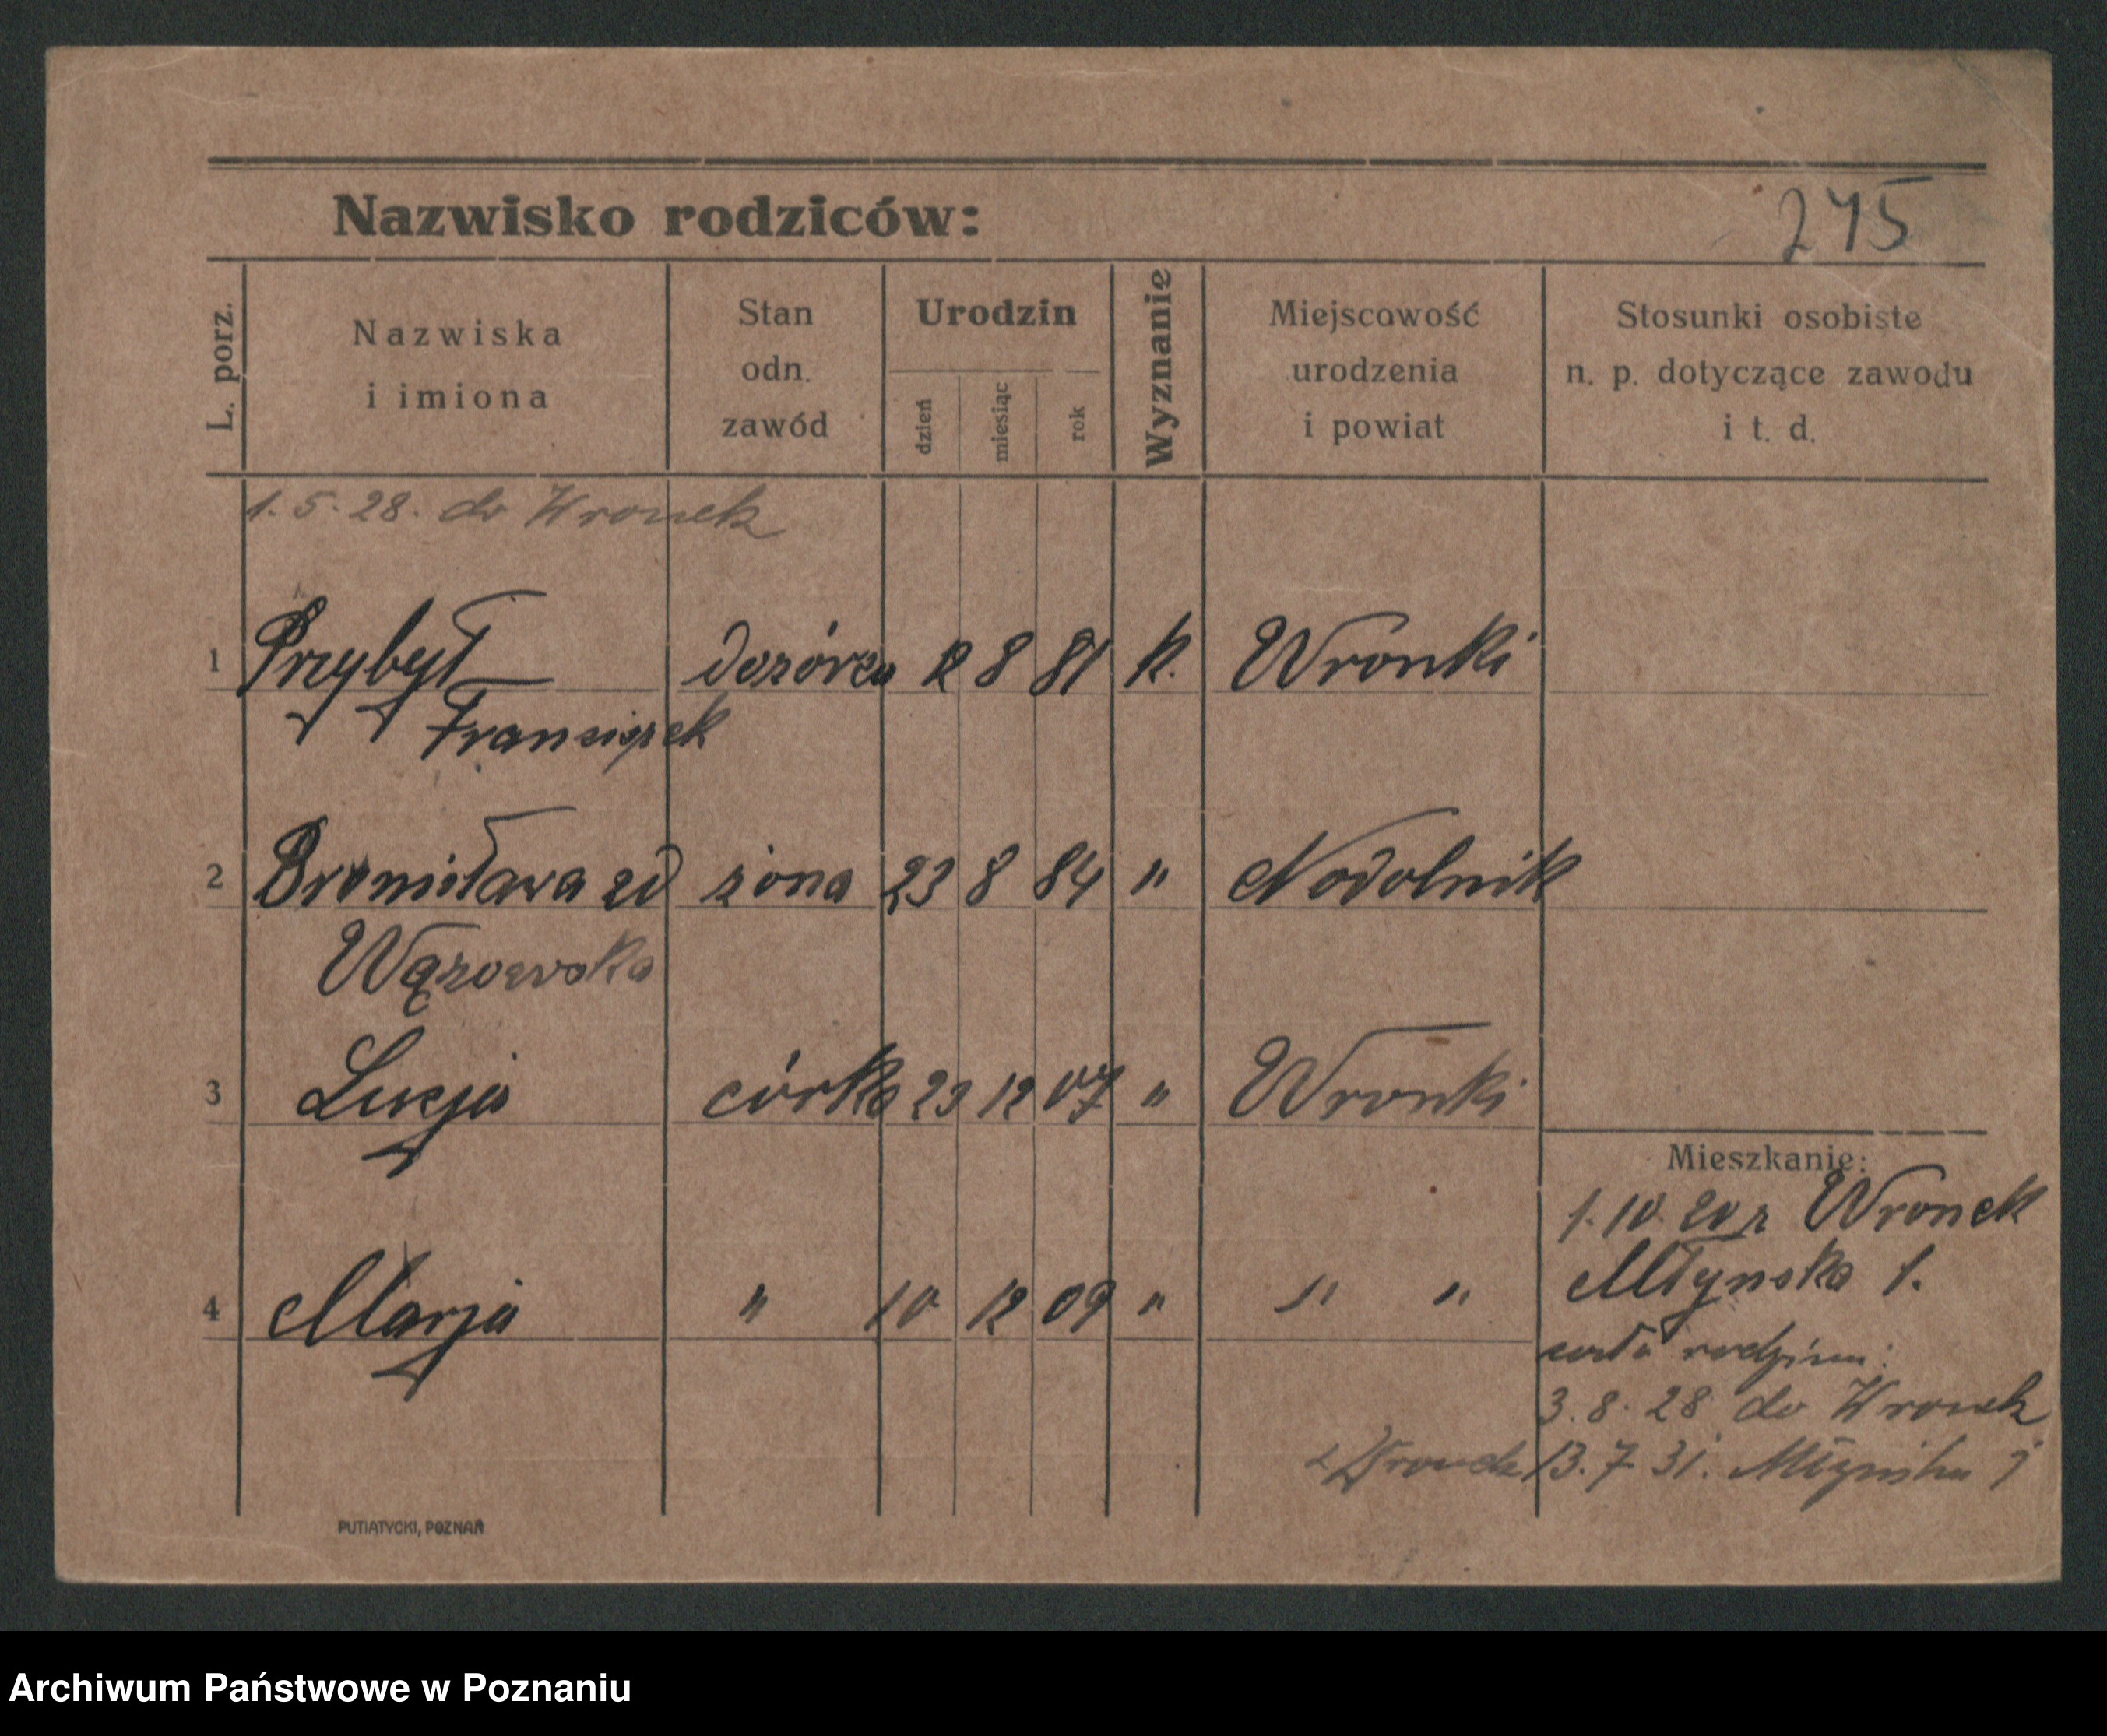 Nazwisko rodziców:
275
L. porz.
Nazwiska
i imiona
Stan
odn.
zawód
Urodzin
dzień
miesiąc
rok
Wyznanie
Miejscowość
urodzenia
i powiat
Stosunki osobiste
n. p. dotyczące zawodu
i t. d.
1. 5. 28. do Wronek
1 Przybył dozórca 12 8 81 k. Wronki
Franciszek
2 Bronisława zd żona 23 8 84 " Nadolnik
3 Lucja córka 23 12 07 " Wronki
Mieszkanie:
1. 10. 20 z Wronek
4 Marja " 10 12 09 " " "
Młyńska 1.
cała rodzina:
3. 8. 28 do Wronek
z Wronek 13. 7 31. Młyńska
PUTIATYCKI, POZNAŃ
Archiwum Państwowe w Poznaniu